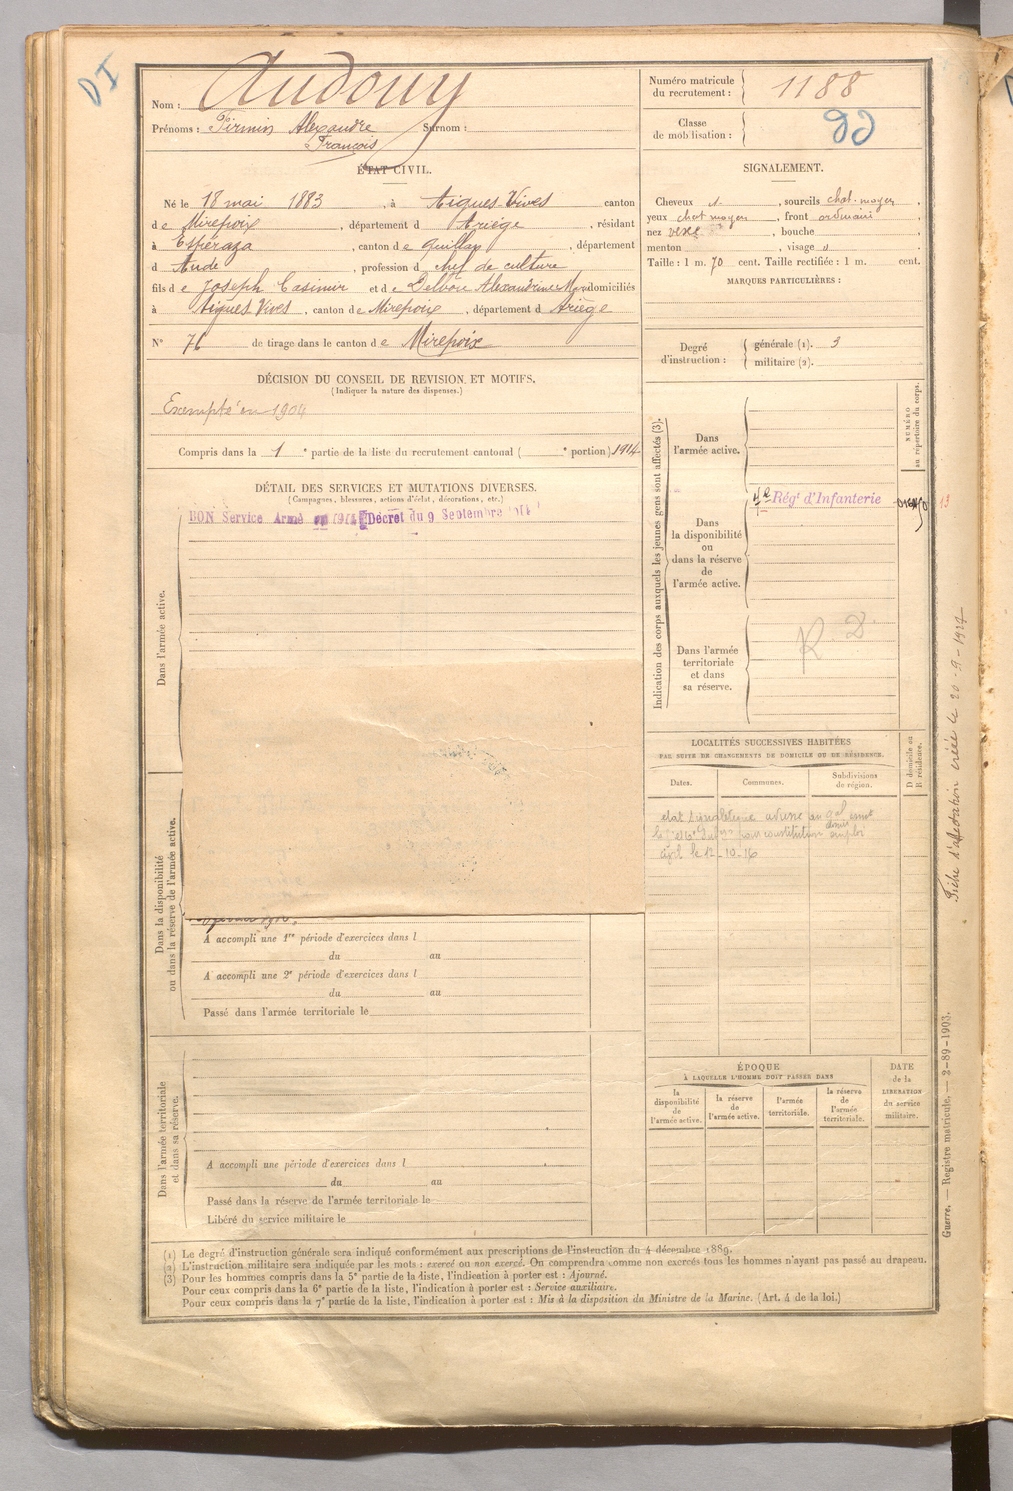 DI
Nom : Audouy
Prénoms : Firmin Alexandre Surnom :
François
ÉTAT CIVIL.
Né le 18 mai 1883 , à Aigues-Vives canton
de Mirepoix , département d Ariège , résidant
à Espéraza , canton de Quillan , département
d Aude , profession d chef de culture
fils de Joseph Casimir et de Alexandrine domiciliés
à Aigues Vives , canton de Mirepoix , département d Ariège
N° 76 de tirage dans le canton de Mirepoix
DÉCISION DU CONSEIL DE REVISION ET MOTIFS.
(Indiquer la nature des dispenses.)
Exempté en 1904
Compris dans la 1 e partie de la liste du recrutement cantonal ( e portion) 1914
DÉTAIL DES SERVICES ET MUTATIONS DIVERSES.
(Campagnes, blessures, actions d'éclat, décorations, etc.)
BON Service Armé 1914 Décret du 9 Septembre 1914
Dans l'armée active.
Dans la disponibilité
ou dans la réserve de l'armée active.
A accompli une 1re période d'exercices dans l
du au
A accompli une 2e période d'exercices dans l
du au
Passé dans l'armée territoriale le
Dans l'armée territoriale
et dans sa réserve.
A accompli une période d'exercices dans l
du au
Passé dans la réserve de l'armée territoriale le
Libéré du service militaire le
Numéro matricule
du recrutement : 1188
Classe
de mobilisation :
SIGNALEMENT.
Cheveux , sourcils chat. moyen ,
yeux chat moyen , front ordinaire ,
nez , bouche ,
menton , visage
Taille : 1 m. 70 cent. Taille rectifiée : 1 m. cent.
MARQUES PARTICULIÈRES :
Degré
d'instruction :
générale (1). 3
militaire (2).
NUMÉRO
au répertoire du corps.
Indication des corps auxquels les jeunes gens sont affectés (3).
Dans
l'armée active.
Dans
la disponibilité
ou
dans la réserve
de
l'armée active.
Régt d'Infanterie
13
Dans l'armée
territoriale
et dans
sa réserve.
R 2
LOCALITÉS SUCCESSIVES HABITÉES
PAR SUITE DE CHANGEMENTS DE DOMICILE OU DE RÉSIDENCE.
Dates. Communes. Subdivisions
de région.
D domicile ou
R résidence.
état signalétique adressé au
pour constitution emploi
le 12-10-16
ÉPOQUE
À LAQUELLE L'HOMME DOIT PASSER DANS
la
disponibilité
de
l'armée active.
la réserve
de
l'armée active.
l'armée
territoriale.
la réserve
de
l'armée
territoriale.
DATE
de la
LIBÉRATION
du service
militaire.
Fiche d'affectation créée le 20-9-1927
Guerre. — Registre matricule. — 2-89-1903.
(1) Le degré d'instruction générale sera indiqué conformément aux prescriptions de l'instruction du 4 décembre 1889.
(2) L'instruction militaire sera indiquée par les mots : exercé ou non exercé. On comprendra comme non exercés tous les hommes n'ayant pas passé au drapeau.
(3) Pour les hommes compris dans la 5e partie de la liste, l'indication à porter est : Ajourné.
Pour ceux compris dans la 6e partie de la liste, l'indication à porter est : Service auxiliaire.
Pour ceux compris dans la 7e partie de la liste, l'indication à porter est : Mis à la disposition du Ministre de la Marine. (Art. 4 de la loi.)